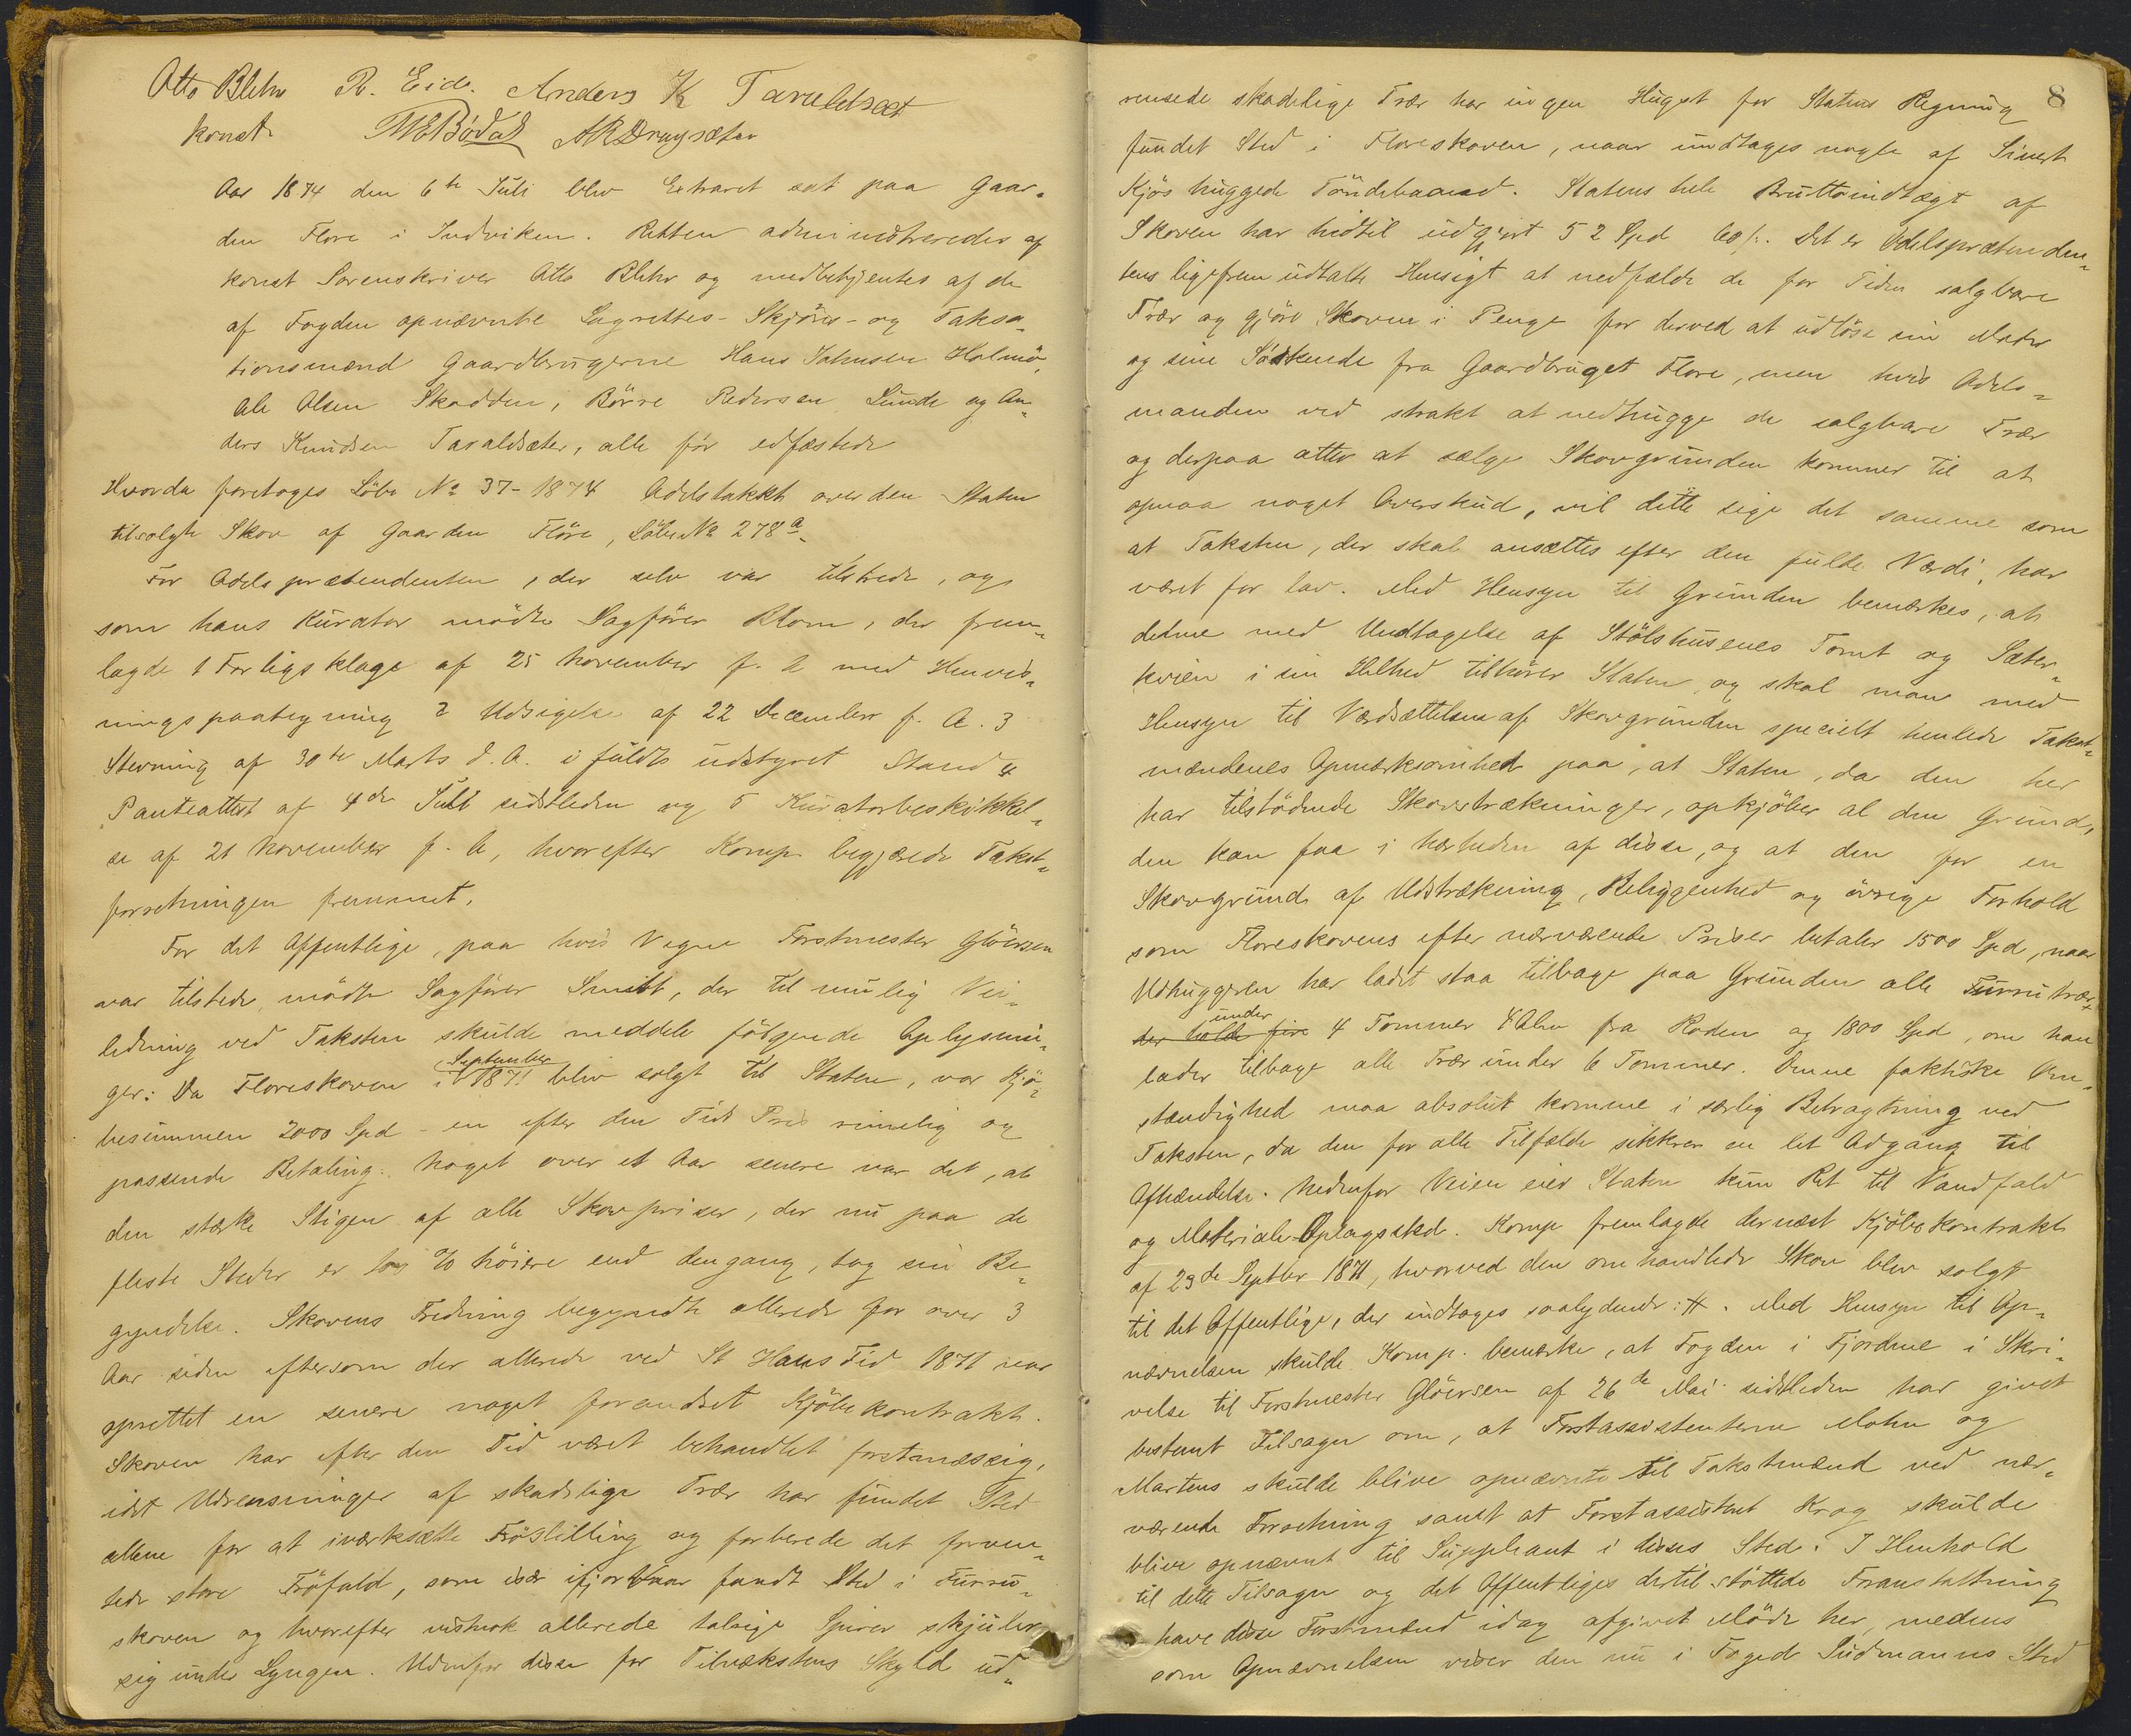 Otto Blehr R. Eide. Anders K Taraldsæt
konst. MEBödal AR Dragsæter
Aar 1874 den 6te Juli blev Extraret sat paa Gaar-
den Flore i Indviken. Retten administreredes af
konst Sorenskriver Otto Blehr og medbetjentes af de
af Fogden opnævnte Lagrettes- Skjöns- og Taksa-
tionsmænd Gaardbrugerne Hans Johnsen Holmö,
Ole Olsen Skadden, Börre Pedersen Lunde og An-
ders Knudsen Taraldsæter, alle för edfæstede
Hvorda foretoges Löbe No 37-1874 Odelstakst over den Staten
tilsolgte Skov af Gaarden Flöre, Löbe No 278a.
For Odelsprætendenten, der selv var tilstede, og
som hans Kurator mödte Sagförer Blom, der frem-
lagde 1 Forligsklage af 25 November f. A med Henvis-
ningspaategning 2 Udsigelse af 22 December f. A. 3
Stevning af 30te Marts d. A. i fuldt udstyret Stand 4
Panteattest af 4de Juli sidstleden og 5 Kuratorbeskikkel-
se af 21 November f. A, hvorefter Komp. begjærede Takst-
forretningen fremmet.
For det Offentlige, paa hvis Vegne Forstmester Glöersen
var tilstede, mödte Sagförer Smitt, der til mulig Vei-
ledning ved Taksten skulde meddele fölgende Oplysnin-
ger: Da Floreskoven i September 1871 blev solgt til Staten, var Kjö-
besummen 2000 Spd - en efter den Tids Pris rimelig og
passende Betaling. Noget over et Aar senere var det, at
den stærke Stigen af alle Skovpriser, der nu paa de
fleste Steder er 100 % höiere end dengang, tog sin Be-
gyndelse. Skovens Fredning begyndte allerede for over 3
Aar siden eftersom der allerede ved St Hans Tid 1871 var
oprettet en senere noget forandret Kjöbekontrakt.
Skoven har efter den Tid været behandlet forstmæssig,
idet Udrensninger af skadelige Trær har fundet Sted
allene for at iværksætte Fröstilling og forberede det forven-
tede store Fröfald, som især ifjor Vaar fandt Sted i Furru-
skoven og hvorefter vistnok allerede talrige Spirer skjuler
sig under Lyngen. Udenfor disse for Tilvækstens Skyld ud-
8
rensede skadelige Trær har ingen Hugst for Statens Regning
fundet Sted i Floreskoven, naar undtages nogle af Sivert
Kjös huggede Töndebaand. Statens hele Bruttoindtægt af
Skoven har hidtil udgjort 52 Spd 60 s. Det er Odelsprætenden-
tens ligefrem udtalte Hensigt at nedfælde de for Tiden salgbare
Trær og gjöre Skoven i Penge for derved at udlöse sin Moder
og sine Södskende fra Gaardbruget Flore, men hvis Odels-
manden ved strakt at nedhugge de salgbare Trær
og derpaa atter at sælge Skovgrunden kommer til at
opnaa noget Overskud, vil dette sige det samme som
at Taksten, der skal ansættes efter den fulde Værdi, har
været for lav. Med Hensyn til Grunden bemærkes, at
denne med Undtagelse af Stölshusenes Tomt og Sæter-
kvien i sin Helhed tilhörer Staten, og skal man med
Hensyn til Værdsættelsen af Skovgrunden specielt henlede Takst-
mændenes Opmærksomhed paa, at Staten, da den her
har tilstödende Skovstrækninger, opkjöber al den Grund,
den kan faa i Nærheden af disse, og at den for en
Skovgrund af Udstrækning, Beliggenhed og övrige Forhold
som Floreskovens efter nærværende Priser betaler 1500 Spd, naar
Udhuggeren har ladet staa tilbage paa Grunden alle Furrutrær,
der holde fire under 4 Tommer 4 Alen fra Roden og 1800 Spd, om han
lader tilbage alle Trær under 6 Tommer. Denne faktiske Om-
stændighed maa absolut komme i særlig Betragtning ved
Taksten, da den for alle Tilfælde sikkrer en let Adgang til
Afhændelse. Nedenfor Veien eier Staten kun Ret til Vandfald
og Materiale-Oplagssted. Komp fremlagde dernæst Kjöbekontrakt
af 23de Septbr 1871, hvorved den omhandlede Skov blev solgt
til det Offentlige, der indtages saalydende: #. Med Hensyn til Op-
nævnelsen skulde Komp. bemærke, at Fogden i Fjordene i Skri-
velse til Forstmester Glöersen af 26de Mai sidstleden har givet
bestemt Tilsagn om, at Forstassistenterne Mohn og
Martens skulde blive opnævnte til Takstmænd ved nær-
værende Forretning samt at Forstassistent Krag skulde
blive opnævnt til Suppleant i disses Sted. I Henhold
til dette Tilsagn og det Offentliges dertil stöttede Foranstaltning
have disse Forstmænd idag afgivet Möde her, medens
som Opnævnelsen viser den nu i Foged Sudmanns Sted